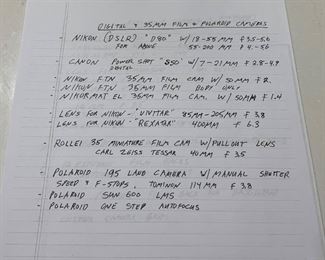 DIGITAL & 35MM FILM & POLAROID CAMERAS
- NIKON (DSLR) "D80" W/ 18-55MM f 3.5-5.6
FOR ABOVE 55-200 MM f 4-5.6
- CANON POWER SHOT "S50" W/ 7-21MM f 2.8-4.9
DIGITAL
- NIKON FTN 35MM FILM CAM W/ 50MM f 2.
- NIKON FTN 35MM FILM BODY ONLY
- NIKORMAT EL 35MM FILM CAM. W/ 50MM f 1.4
- LENS FOR NIKON - "VIVITAR" 85MM-205/MM f 3.8
- LENS FOR NIKON - "REXATAR" 400MM f 6.3
- ROLLEI 35 MINIATURE FILM CAM W/ PULLOUT LENS
CARL ZEISS TESSAR 40MM f 3.5
- POLAROID 195 LAND CAMERA W/ MANUAL SHUTTER
SPEED & F-STOPS, TOMINON 114MM f 3.8
- POLAROID SUN 600 LMS
- POLAROID ONE STEP AUTOFOCUS